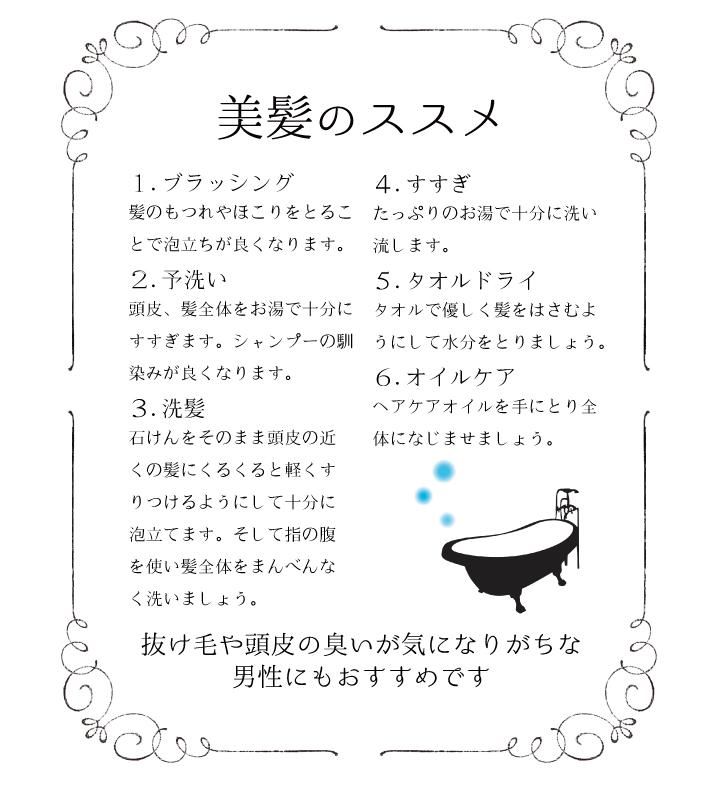 美髪のススメ
1.ブラッシング
髪のもつれやほこりをとるこ
とで泡立ちが良くなります。
2.予洗い
頭皮、髪全体をお湯で十分に
すすぎます。シャンプーの馴
染みが良くなります。
3.洗髪
石けんをそのまま頭皮の近
くの髪にくるくると軽くす
りつけるようにして十分に
泡立てます。そして指の腹
を使い髪全体をまんべんな
く洗いましょう。
4.すすぎ
たっぷりのお湯で十分に洗い
流します。
5.タオルドライ
タオルで優しく髪をはさむよ
うにして水分をとりましょう。
6.オイルケア
ヘアケアオイルを手にとり全
体になじませましょう。
抜け毛や頭皮の臭いが気になりがちな
男性にもおすすめです